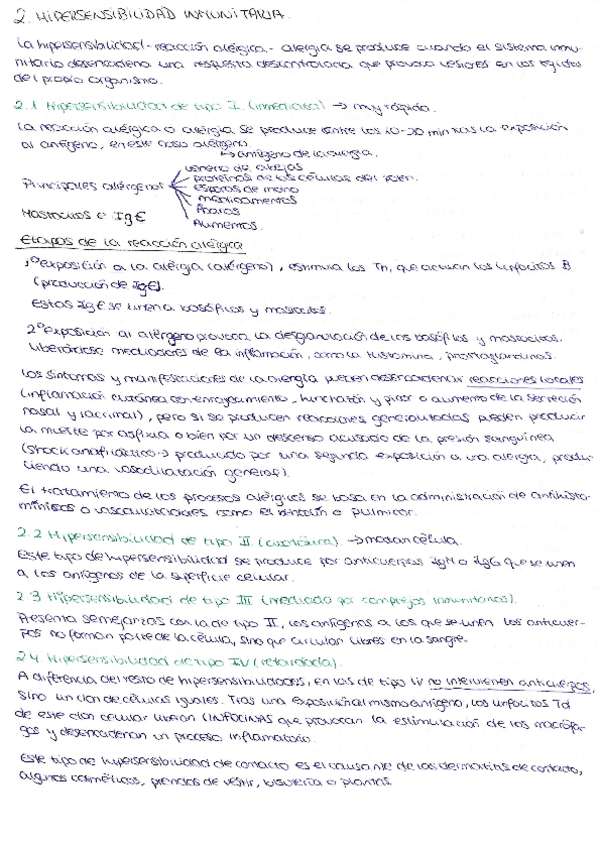 2. HIPERSENSIBILIDAD INMUNITARIA.
La hipersensibilidad - reacción alérgica - alergia se produce cuando el sistema inmu-
nitario desencadena una respuesta descontrolada que provoca lesiones en los tejidos
del propio organismo.
2.1 Hipersensibilidad de tipo I. (inmediata) → muy rápida.
La reacción alérgica o alergia se produce entre los 10-20 min tras la exposición
al antígeno, en este caso alérgeno.
↳ antígeno de la alergia.
Principales alérgenos
veneno de abejas
proteínas de las células del polen.
esporas de moho
medicamentos
Ácaros
Alimentos.
Mastocitos e IgE
Etapas de la reacción alérgica
1º exposición a la alergia (alérgeno), estimula los TH, que activan los linfocitos B
(producción de IgE).
Estas IgE se unen a basófilos y mastocitos.
2º Exposición al alérgeno provoca la desgranulación de los basófilos y mastocitos.
Liberándose mediadores de la inflamación, como la histamina, prostaglandinas.
Los síntomas y manifestaciones de la alergia pueden desencadenar reacciones locales
(inflamación cutánea con enrojecimiento, hinchazón y picor o aumento de la secreción
nasal y lacrimal), pero si se producen reacciones generalizadas pueden producir
la muerte por asfixia o bien por un descenso acusado de la presión sanguínea
(shock anafiláctico → producido por una segunda exposición a una alergia, produ-
ciendo una vasodilatación general).
El tratamiento de los procesos alérgicos se basa en la administración de antihista-
mínicos o como el o pulmicor.
2.2 Hipersensibilidad de tipo II. (citotóxica). → matan célula.
Este tipo de hipersensibilidad se produce por anticuerpos IgM o IgG que se unen
a los antígenos de la superficie celular.
2.3 Hipersensibilidad de tipo III (mediada por complejos inmunitarios).
Presenta semejanzas con la de tipo II, los antígenos a los que se unen los anticuer-
pos no forman parte de la célula, sino que circulan libres en la sangre.
2.4. Hipersensibilidad de tipo IV (retardada).
A diferencia del resto de hipersensibilidades, en las de tipo IV no intervienen anticuerpos,
sino un clon de células iguales. Tras una exposición al mismo antígeno, los linfocitos Td
de este clon celular liberan LINFOCINAS que provocan la estimulación de los macrófa-
gos y desencadenan un proceso inflamatorio.
Este tipo de hipersensibilidad de contacto es el causante de las dermatitis de contacto,
algunos cosméticos, prendas de vestir, bisutería o plantas.